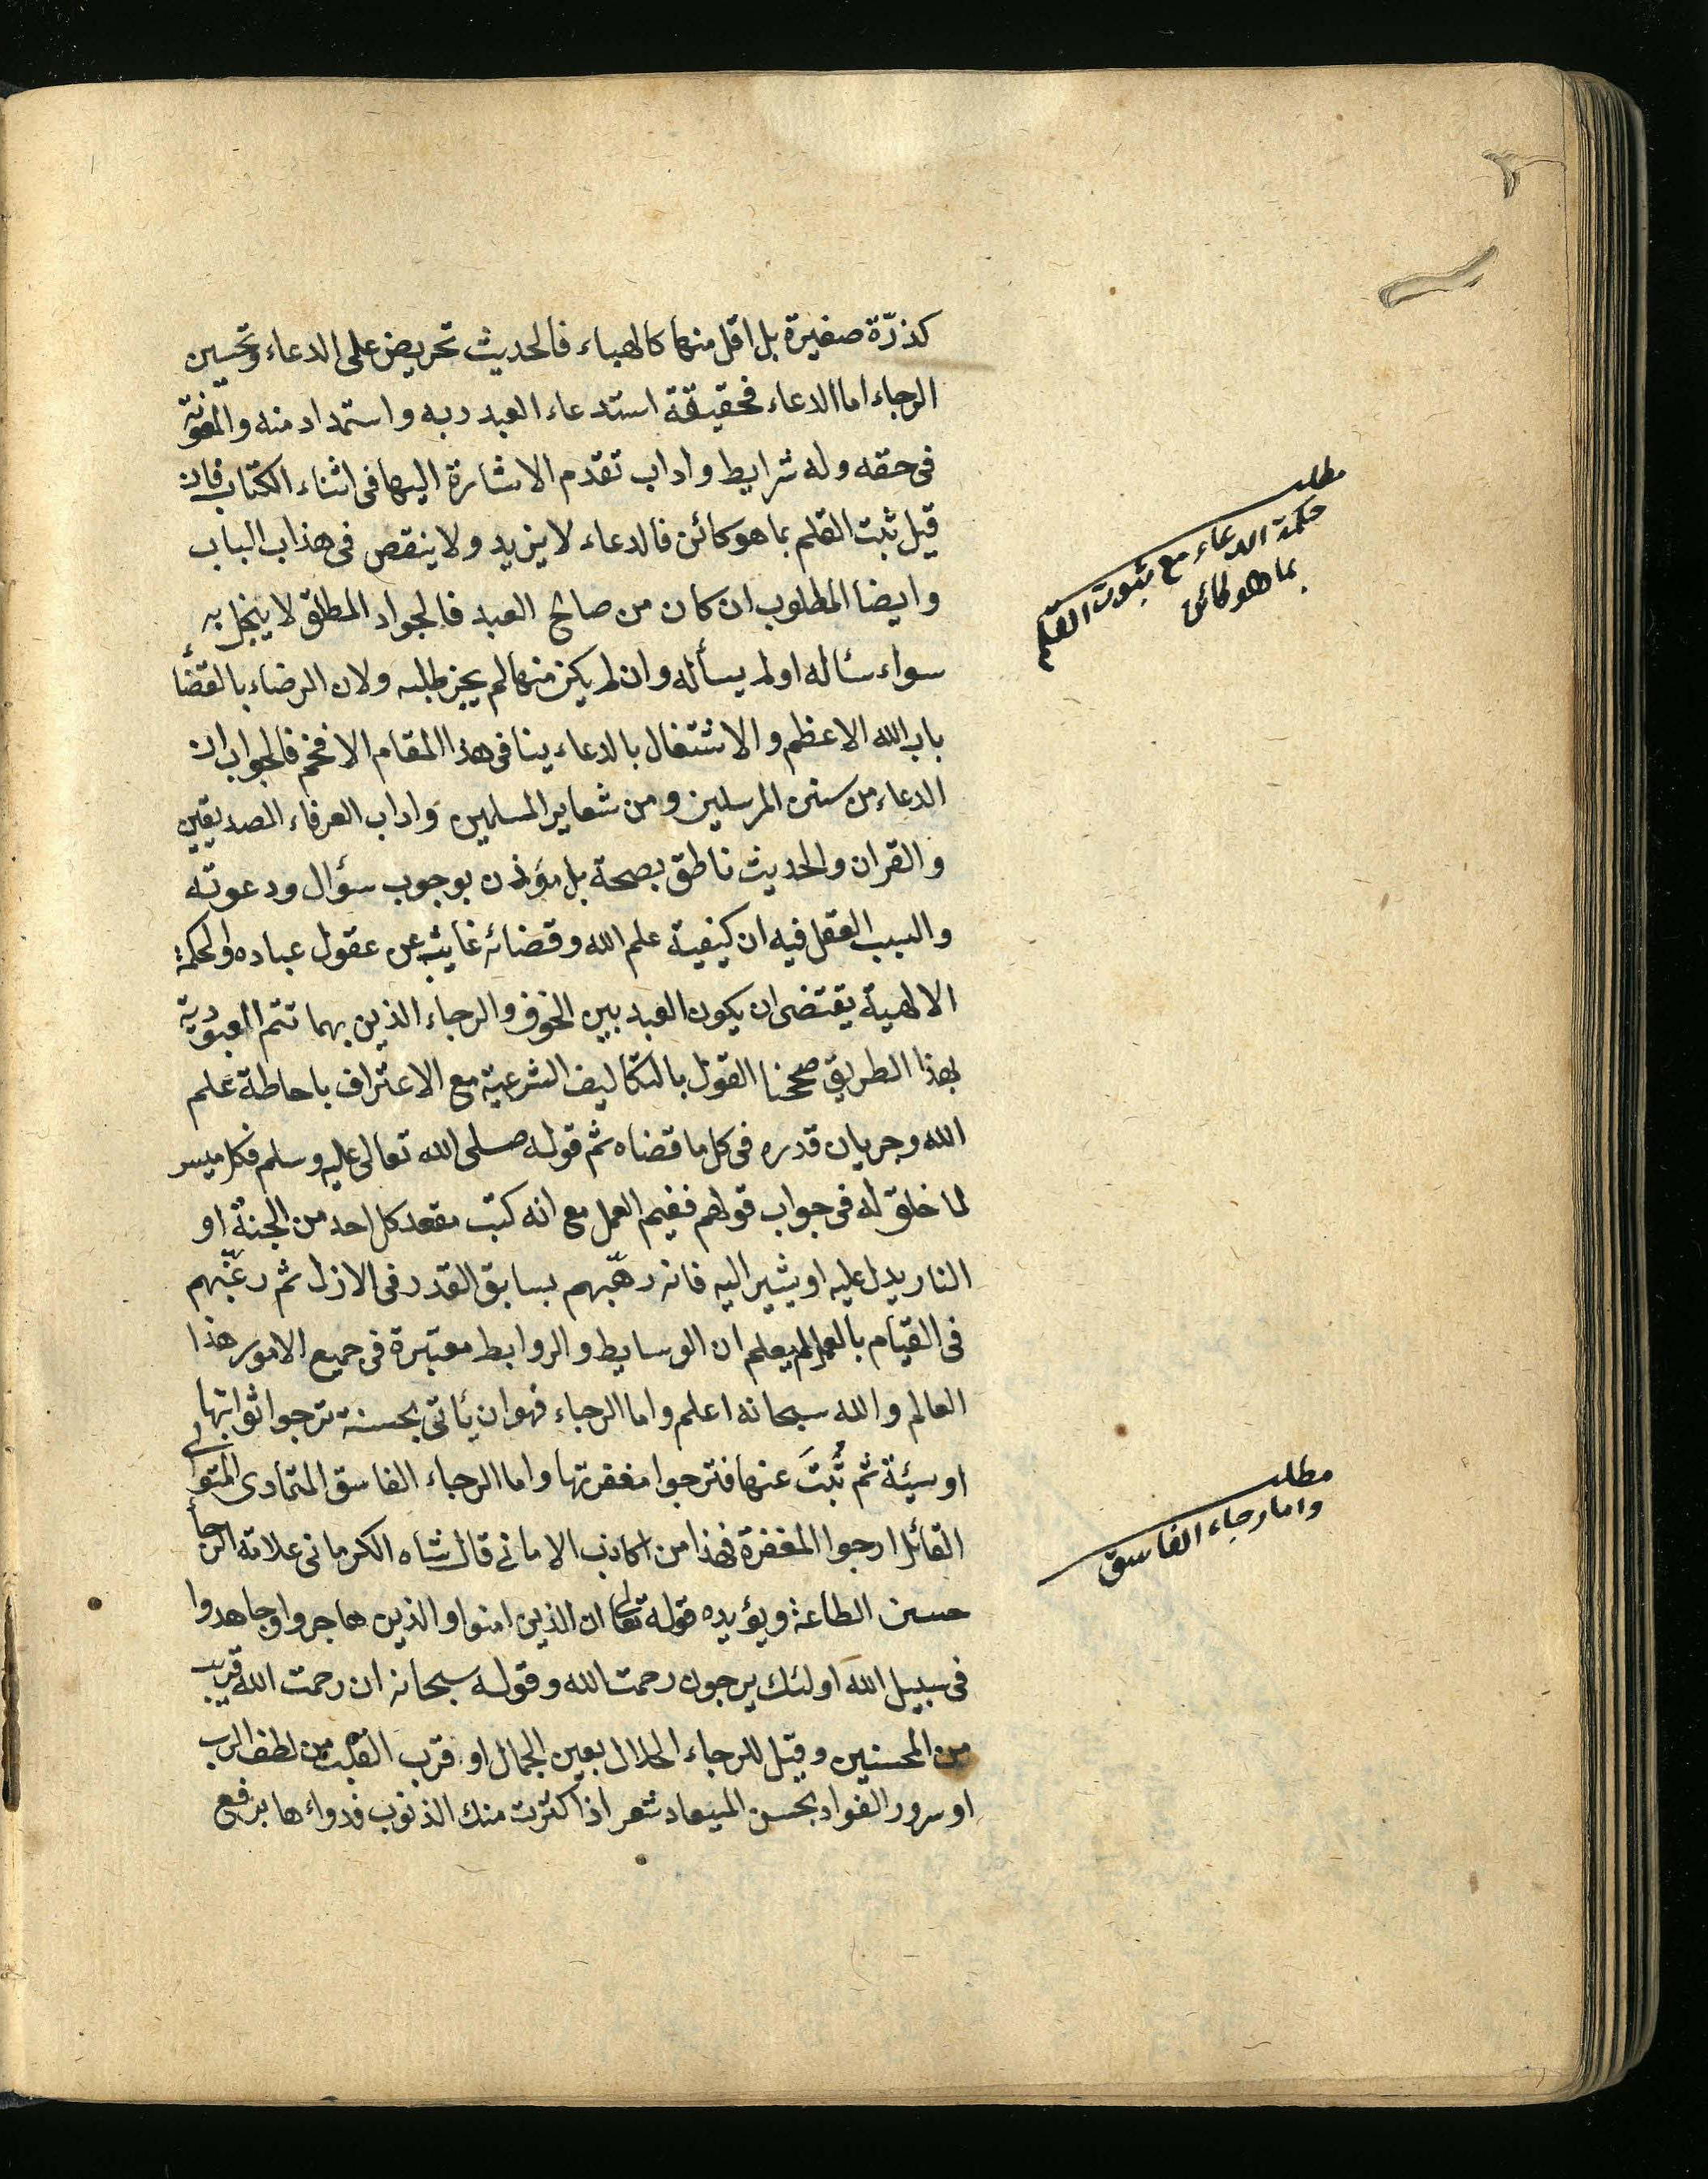 كذرّة صغيرة بل اقل منها كالهباء فالحديث تحريض على الدعاء وتحسين
الرجاء اما الدعاء فحقيقة استدعاء العبد ربه واستمداد منه والمعونة
فى حقه وله شرايط واداب تقدم الاشارة اليها فى اثناء الكتاب فان
قيل ثبت القلم بما هو كائن فالدعاء لا يزيد ولا ينقص فى هذاب الباب
وايضا المطلوب ان كان من صالح العبد فالجواد المطلق لا يبخل به
سواء سئاله اولم يسأله وان لم يكن منها لم يجز طلبه ولان الرضاء بالقضاء
باب الله الاعظم والاشتغال بالدعاء ينافى هذا المقام الافخم فالجواب ان
الدعاء من سنن المرسلين ومن شعاير المسلمين واداب العرفاء الصديقين
والقران والحديث ناطق بصحة بل مؤذن بوجوب سؤال ودعوته
والسبب العقل فيه ان كيفية علم الله وقضائه غائبة عن عقول عباده والحكمة
الالهية يقتضى ان يكون العبد بين الخوف والرجاء الذين بهما تتم العبودية
بهذا الطريق صححنا القول بالتكاليف الشرعية مع الاعتراف باحاطة علم
الله وجريان قدره فى كل ما قضاه ثم قوله صلى الله تعالى عليه وسلم فكل ميسر
لما خلق له فى جواب قولهم ففيم العمل مع انه كتبت مقعد كل احد من الجنة او
النار يدل عليه او يشير اليه فانه رهّبهم بسابق القدر فى الازل ثم رغّبهم
فى القيام بالعمل لم يعلم ان الوسايط والروابط معتبرة فى جميع الامور هذا
العالم والله سبحانه اعلم واما الرجاء فهو ان يأتى بحسنة ترجوا ثوابتها
او سيئة ثم تُبتَ عنها فترجوا مغفرتها واما الرجاء الفاسق المتمادى المتوالى
القائل ارجوا المغفرة فهذا من اكاذب الامانى قال شاه الكرمانى علامة الرجأ
حسن الطاعة ويؤيده قوله تعالى ان الذين امنوا والذين هاجروا وجاهدوا
فى سبيل الله اولئك يرجون رحمت الله وقوله سبحانه ان رحمت الله قريب
من المحسنين وقيل للرجاء الحلال بعين الجمال او قرب القلب من لطف الرب
او سرور الفواد بحسن الميعاد شعر اذا كثرت منك الذنوب فدواءها برفع
مطلب
حكمة الدعاء مع ثبوت القلم
بما هو كائن
مطلب
واما رجاء الفاسق